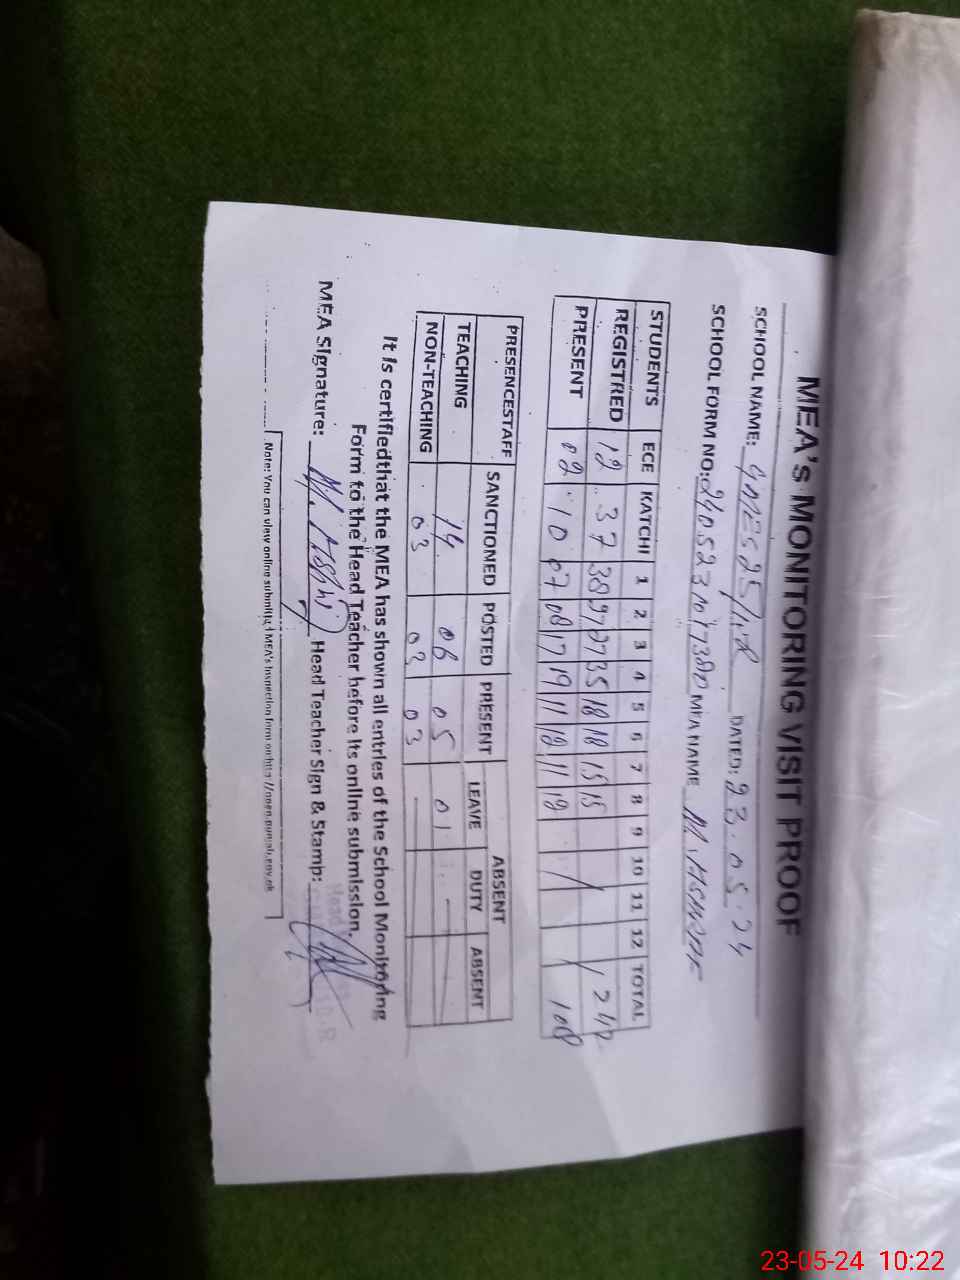 MEA's MONITORING VISIT PROOF
SCHOOL NAME: DATED: 23.05.24
SCHOOL FORM NO: MEA NAME
STUDENTS ECE KATCHI 1 2 3 4 5 6 7 8 9 10 11 12 TOTAL
REGISTRED 12 37 38 27 35 18 18 15 15
PRESENT 02 10 07 08 17 19 11 12 11 12 108
PRESENCESTAFF SANCTIONED POSTED PRESENT ABSENT
LEAVE DUTY ABSENT
TEACHING 14 06 05 01
NON-TEACHING 03 03 03
It is certifiedthat the MEA has shown all entries of the School Monitoring
Form to the Head Teacher before its online submission.
MEA Signature: Head Teacher Sign & Stamp:
Note: You can view online submitted MEA's Inspection form on
23-05-24 10:22